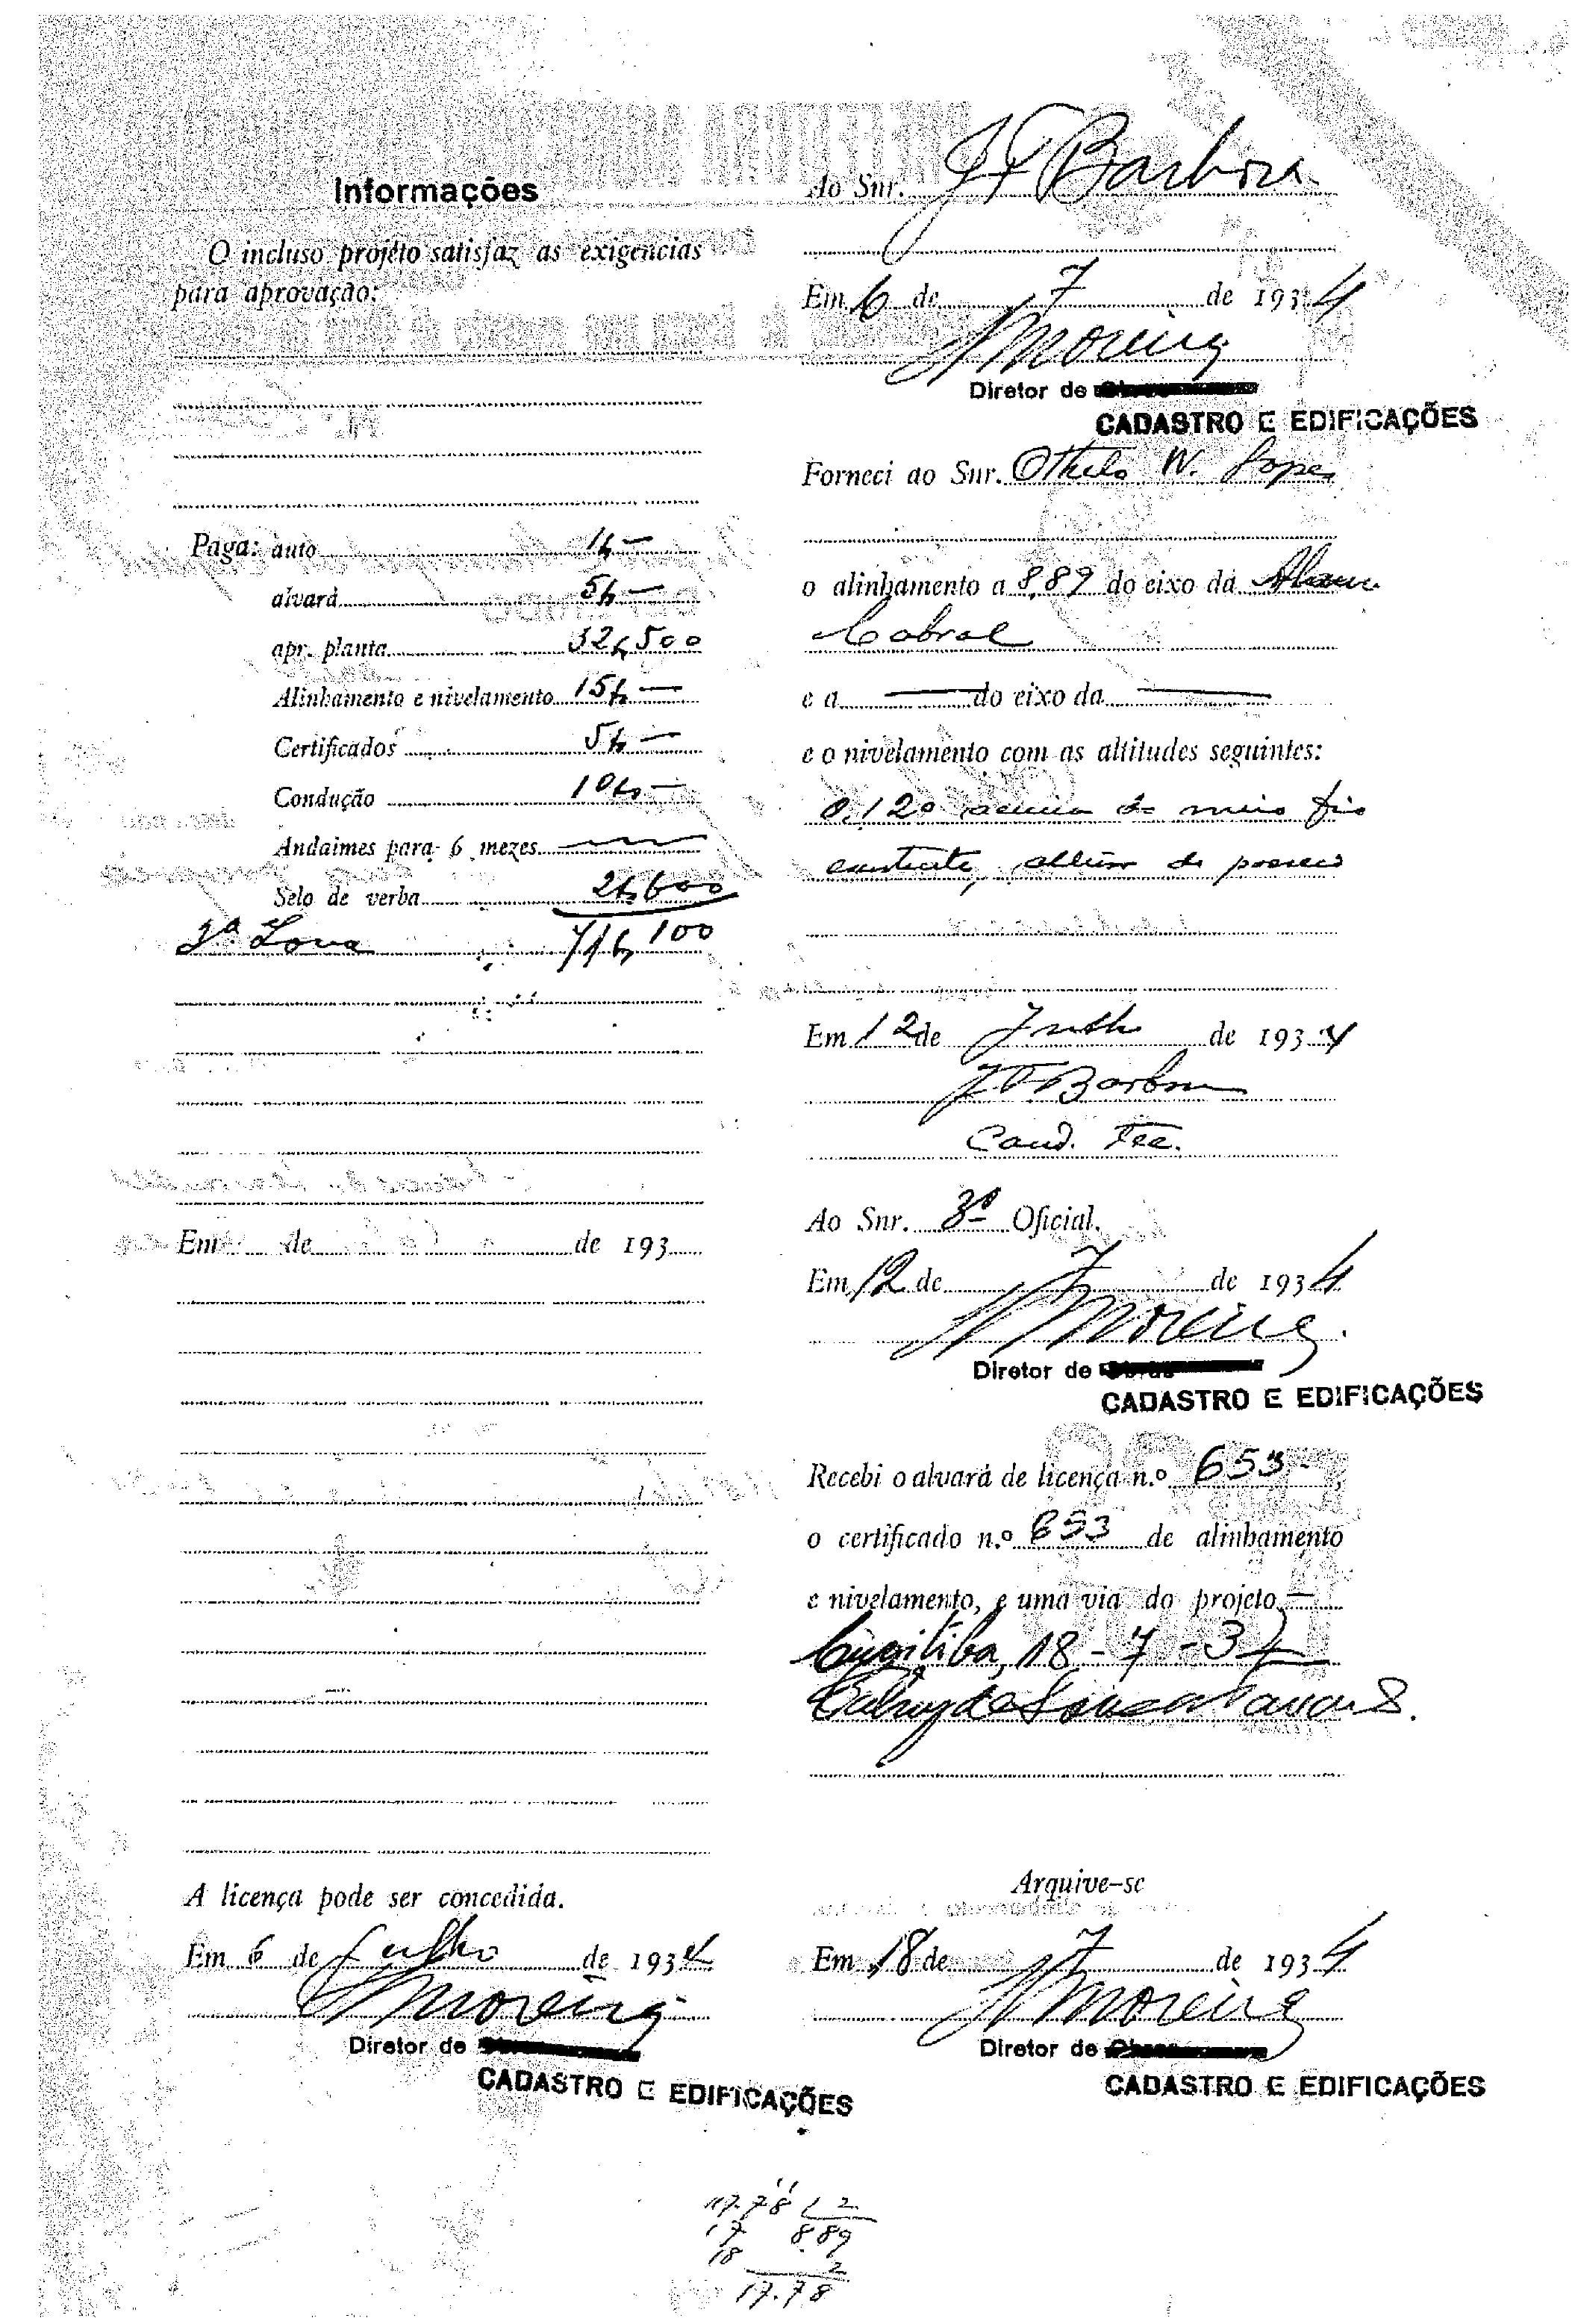 Informações
O incluso projéto satisfaz as exigencias
para aprovação:
Paga: auto 1$—
alvará 5$—
apr. planta 32$500
Alinhamento e nivelamento 15$—
Certificados 5$—
Condução 10$—
Andaimes para 6 mezes
Selo de verba 2$600
3ª Zona 71$100
Em de de 193
A licença pode ser concedida.
Em 6 de Julho de 1934
Moreira
Diretor de
CADASTRO E EDIFICAÇÕES
Ao Snr. J F Barboza
Em 6 de 7 de 1934
Moreira
Diretor de
CADASTRO E EDIFICAÇÕES
Forneci ao Snr. Othelo W. Lopes
o alinhamento a 8,89 do eixo da
Cabral
e a — do eixo da —
e o nivelamento com as altitudes seguintes:
0,120 acima do meio fio
existente, allém do passeio
Em 12 de Julho de 1934
J F. Barboza
Cond. Tec.
Ao Snr. 3º Oficial.
Em 12 de 7 de 1934
Moreira
Diretor de Obras
CADASTRO E EDIFICAÇÕES
Recebi o alvará de licença n.º 653
o certificado n.º 653 de alinhamento
e nivelamento, e uma via do projeto.
Curitiba, 18-7-34
Arquive-se
Em 18 de 7 de 1934
Moreira
Diretor de
CADASTRO E EDIFICAÇÕES
17.78 2
17 8.89
18 2
17.78